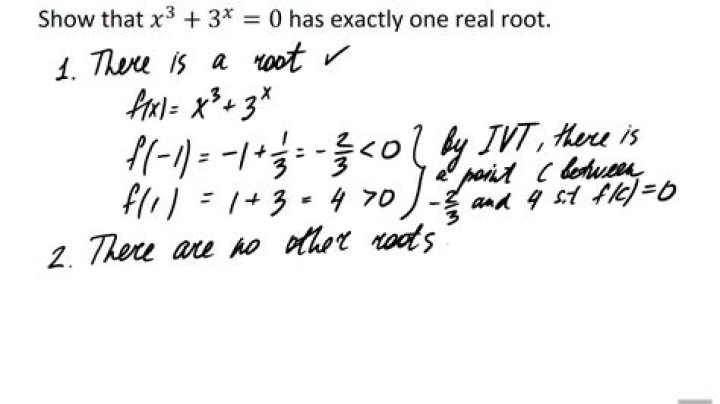 Show that x³ + 3ˣ = 0 has exactly one real root.
1. There is a root ✓
f(x) = x³ + 3ˣ
f(-1) = -1 + 1/3 = -2/3 < 0 } By IVT, there is
a point C between
f(1) = 1 + 3 = 4 > 0 -2/3 and 4 s.t f(c) = 0
2. There are no other roots